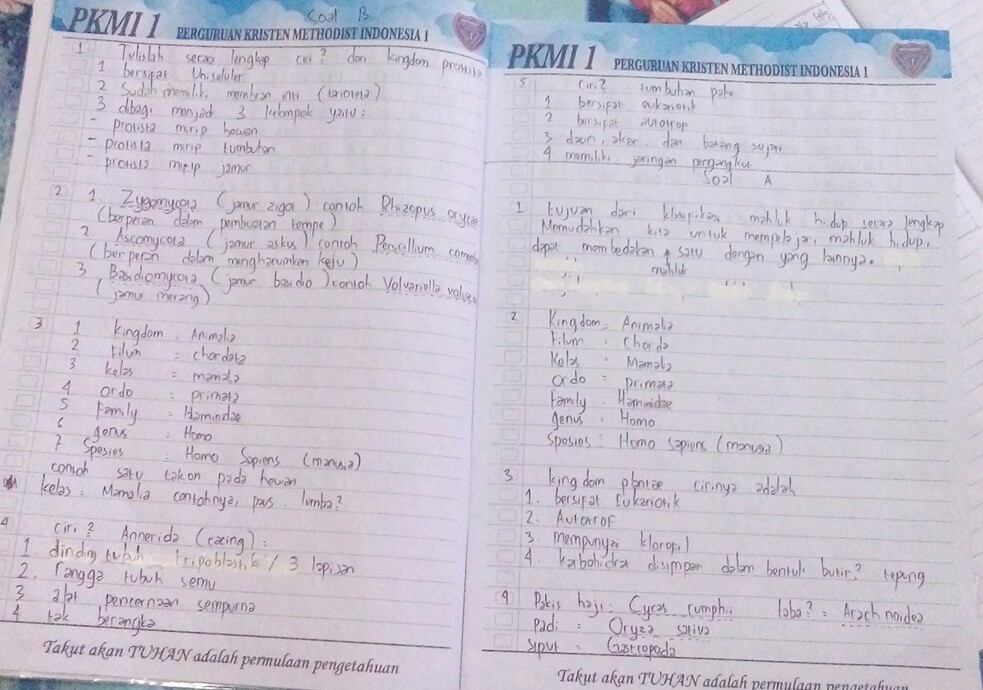 Soal B
PKMI 1 PERGURUAN KRISTEN METHODIST INDONESIA 1
1 Tulislah secara lengkap ciri2 dari kingdom protista
1 bersifat Uniseluler
2 Sudah memiliki membran inti (kariotela)
3 dibagi menjadi 3 kelompok yaitu:
- Protista mirip hewan
- Protista mirip tumbuhan
- protista mirip jamur
2 1 Zygomycota (jamur zigot) contoh Rhizopus oryzae
(berperan dalam pembuatan tempe)
2. Ascomycota (jamur askus) contoh Penicillum
(berperan dalam mengharumkan keju)
3 Basidiomycota (jamur basidio) contoh Volvariella
(jamur merang)
3 1 kingdom : Animalia
2 filum = chordata
3 kelas = mamalia
4 ordo = primata
5 Family = Haminidae
6 genus : Homo
7 Spesies : Homo Sapiens (manusia)
contoh satu takson pada hewan
kelas : Mamalia contohnya, paus, lumba2
4 ciri2 Annerida (cacing) :
1. dinding tubuh tripoblastik / 3 lapisan
2. rongga tubuh semu
3 alat pencernaan sempurna
4 tak berangka
Takut akan TUHAN adalah permulaan pengetahuan
PKMI 1 PERGURUAN KRISTEN METHODIST INDONESIA 1
5 ciri2 tumbuhan paku
1 bersifat eukariotik
2 bersifat autotrop
3 daun, akar, dan batang sejati
4 memiliki jaringan pengangkut
Soal A
1 tujuan dari klasifikasi mahluk hidup secara lengkap
Memudahkan kita untuk mempelajari mahluk hidup,
dapat membedakan satu dengan yang lainnya.
mahluk
2 Kingdom = Animalia
filum : Chorda
Kelas : Mamalia
ordo = primata
Family : Haminidae
genus : Homo
Spesies : Homo sapiens (manusia)
3 kingdom plantae cirinya adalah
1. bersifat Eukariotik
2. Autotrof
3. mempunyai kloropil
4. karbohidrat disimpan dalam bentuk butir2 tepung
4 Pakis haji : Cycas rumphii laba2 = Arachnoidea
Padi : Oryza sativa
Siput : Gastropoda
Takut akan TUHAN adalah permulaan pengetahuan